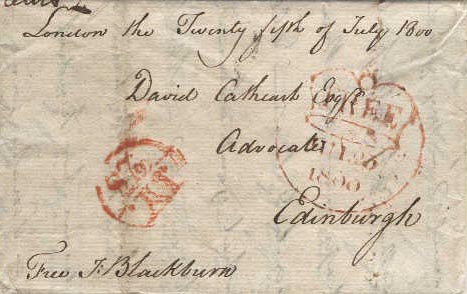 London the Twenty fifth of July 1800
David Cathcart Esqr
Advocate
Edinburgh
Free J: Blackburn
FREE
26
1800